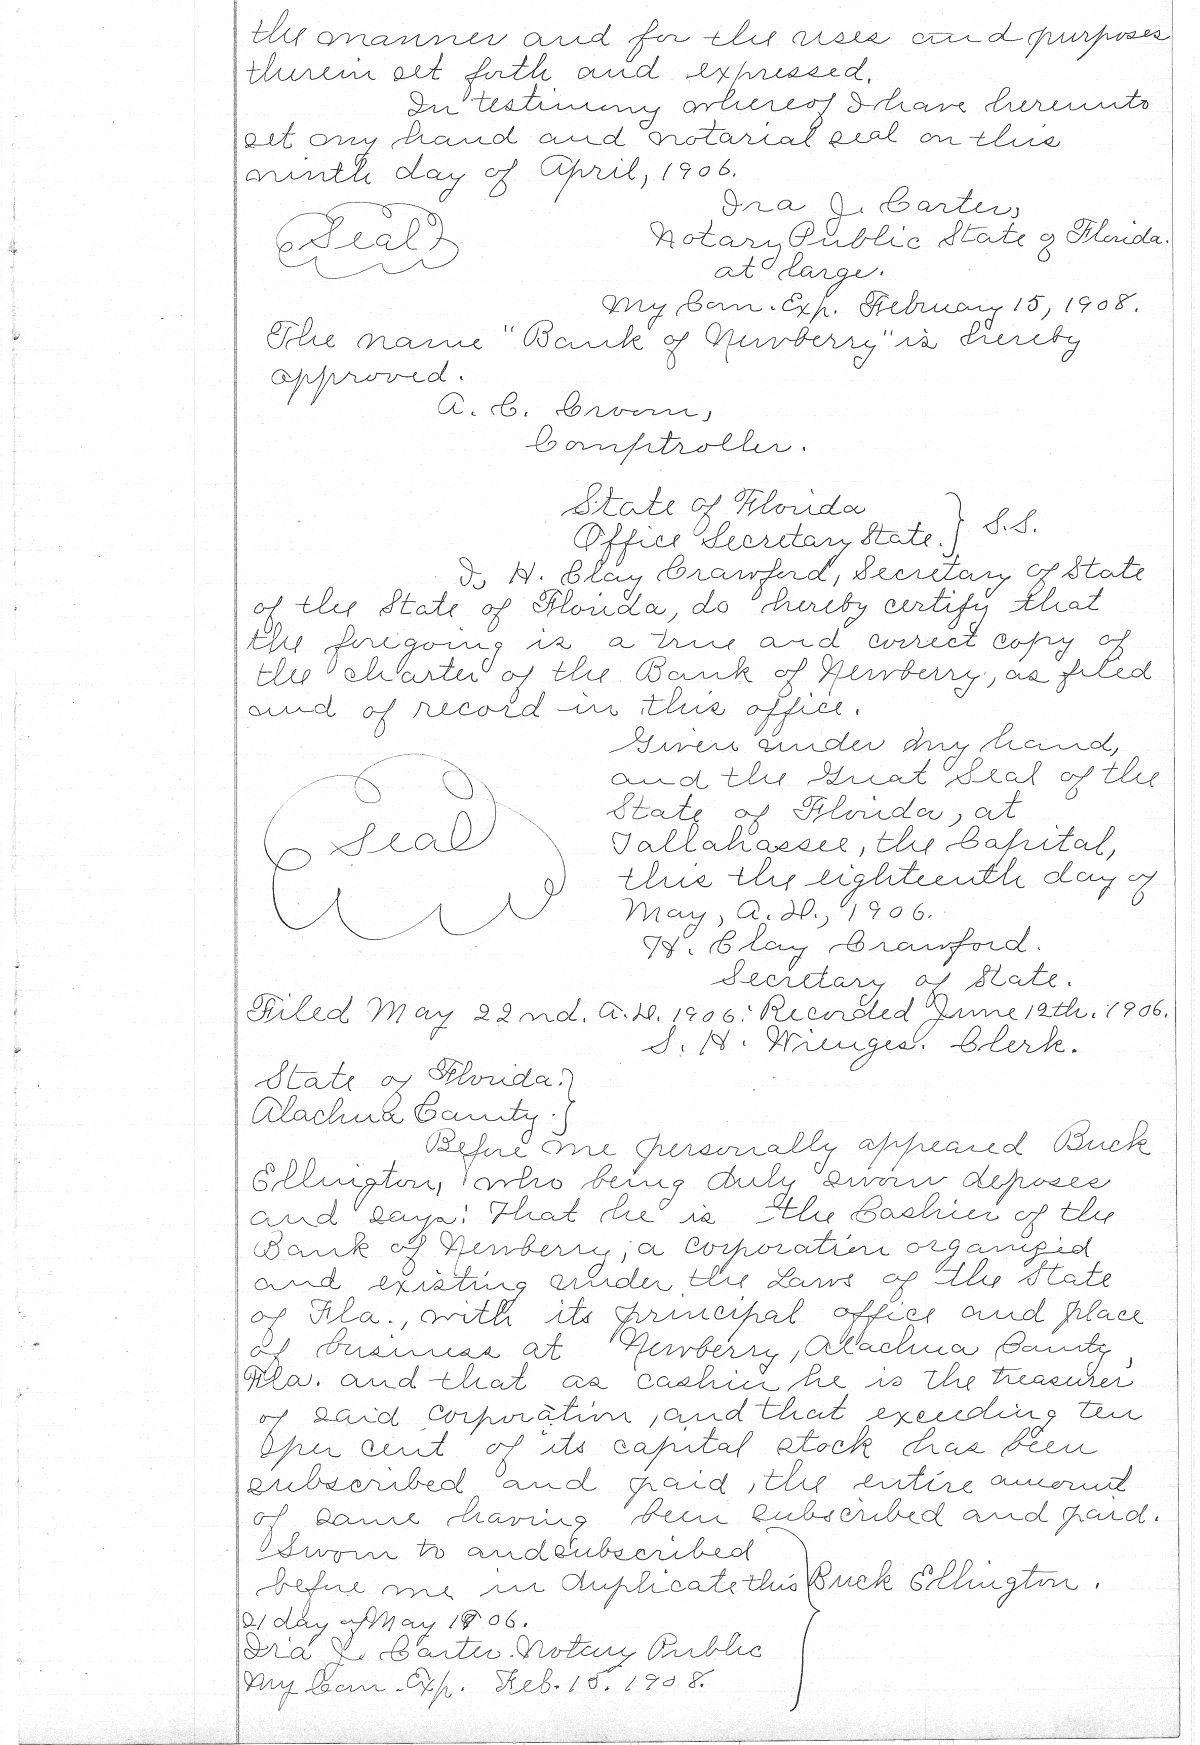 the manner and for the uses and purposes
therein set forth and expressed.
In testimony whereof I have hereunto
set my hand and notarial seal on this
ninth day of April, 1906.
Ira J. Carter,
Seal
Notary Public State of Florida.
at large.
My Com. Exp. February 15, 1908.
The name "Bank of Newberry" is hereby
approved.
A. C. Croom,
Comptroller.
State of Florida
Office Secretary State. } S.S.
I, H. Clay Crawford, Secretary of State
of the State of Florida, do hereby certify that
the foregoing is a true and correct copy of
the charter of the Bank of Newberry, as filed
and of record in this office.
Given under my hand,
and the Great Seal of the
State of Florida, at
Seal
Tallahassee, the Capital,
this the eighteenth day of
May, A.D., 1906.
H. Clay Crawford.
Secretary of State.
Filed May 22nd. A.D. 1906. Recorded June 12th. 1906.
S. H. Wienges. Clerk.
State of Florida. }
Alachua County. }
Before me personally appeared Buck
Ellington, who being duly sworn deposes
and says: That he is the Cashier of the
Bank of Newberry, a corporation organized
and existing under the Laws of the State
of Fla., with its principal office and place
of business at Newberry, Alachua County,
Fla. and that as cashier he is the treasurer
of said corporation, and that exceeding ten
per cent of its capital stock has been
subscribed and paid, the entire amount
of same having been subscribed and paid.
Sworn to and subscribed
before me in duplicate this } Buck Ellington.
21 day of May 1906.
Ira J. Carter. Notary Public
My Com. Exp. Feb. 15. 1908.